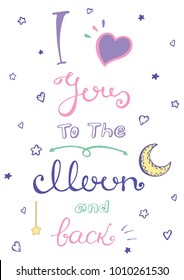 I
You
To The
Moon
and
back
shutterstock.com · 1010261530